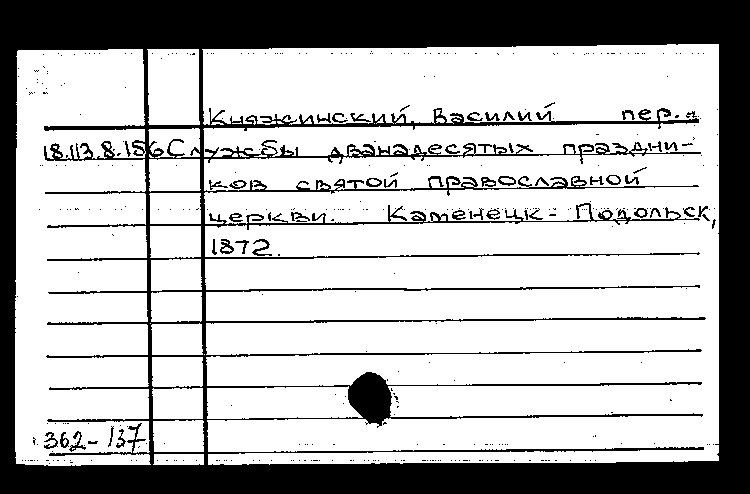 Княжинский, Василий пер.
18.113.8.156 Службы дванадесятых праздни-
ков святой православной
церкви. Каменецк-Подольск,
1872.
362-137